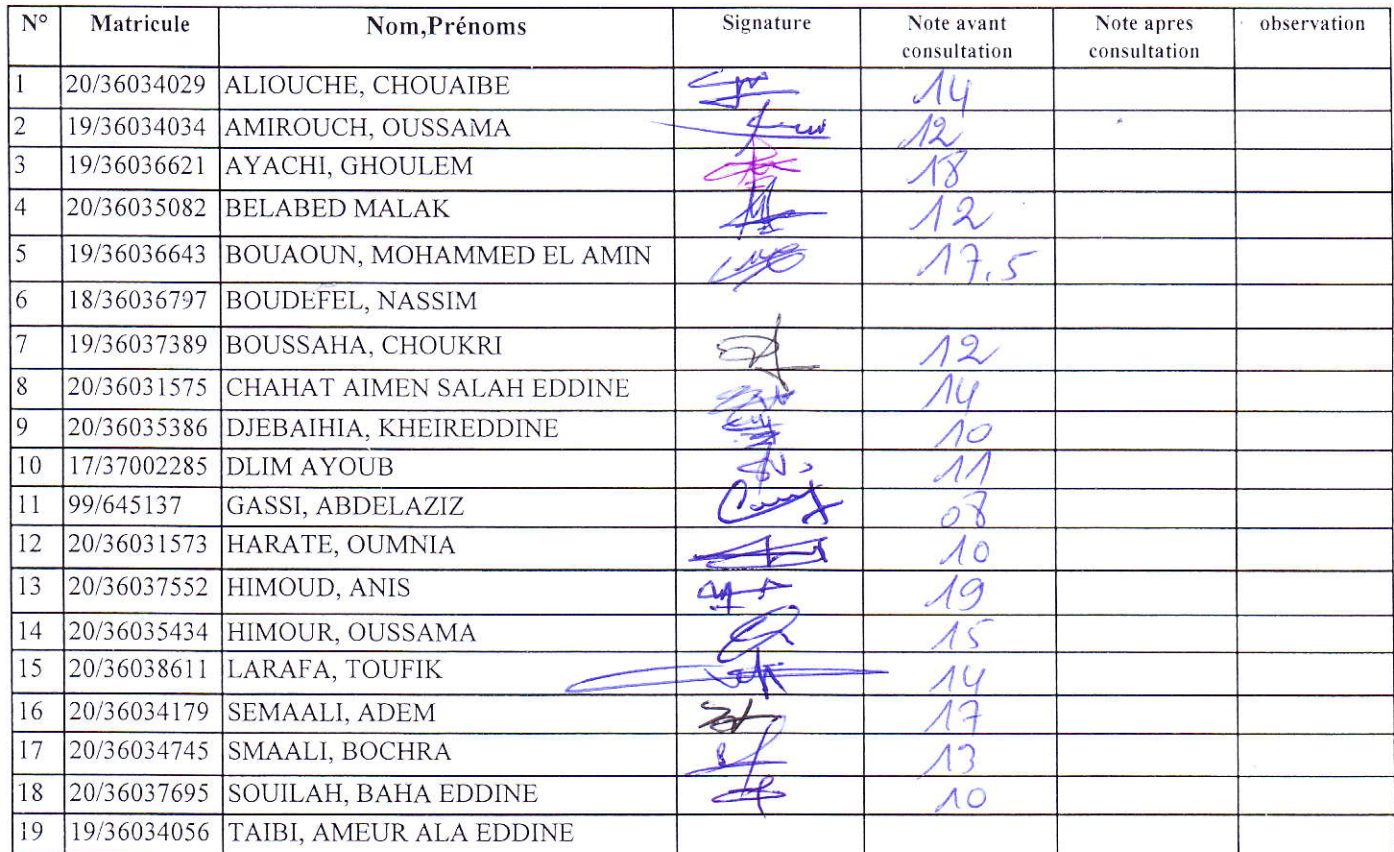 N° Matricule Nom,Prénoms Signature Note avant consultation Note apres consultation observation
1 20/36034029 ALIOUCHE, CHOUAIBE 14
2 19/36034034 AMIROUCH, OUSSAMA 12
3 19/36036621 AYACHI, GHOULEM 18
4 20/36035082 BELABED MALAK 12
5 19/36036643 BOUAOUN, MOHAMMED EL AMIN 17,5
6 18/36036797 BOUDEFEL, NASSIM
7 19/36037389 BOUSSAHA, CHOUKRI 12
8 20/36031575 CHAHAT AIMEN SALAH EDDINE 14
9 20/36035386 DJEBAIHIA, KHEIREDDINE 10
10 17/37002285 DLIM AYOUB 11
11 99/645137 GASSI, ABDELAZIZ 08
12 20/36031573 HARATE, OUMNIA 10
13 20/36037552 HIMOUD, ANIS 19
14 20/36035434 HIMOUR, OUSSAMA 15
15 20/36038611 LARAFA, TOUFIK 14
16 20/36034179 SEMAALI, ADEM 17
17 20/36034745 SMAALI, BOCHRA 13
18 20/36037695 SOUILAH, BAHA EDDINE 10
19 19/36034056 TAIBI, AMEUR ALA EDDINE